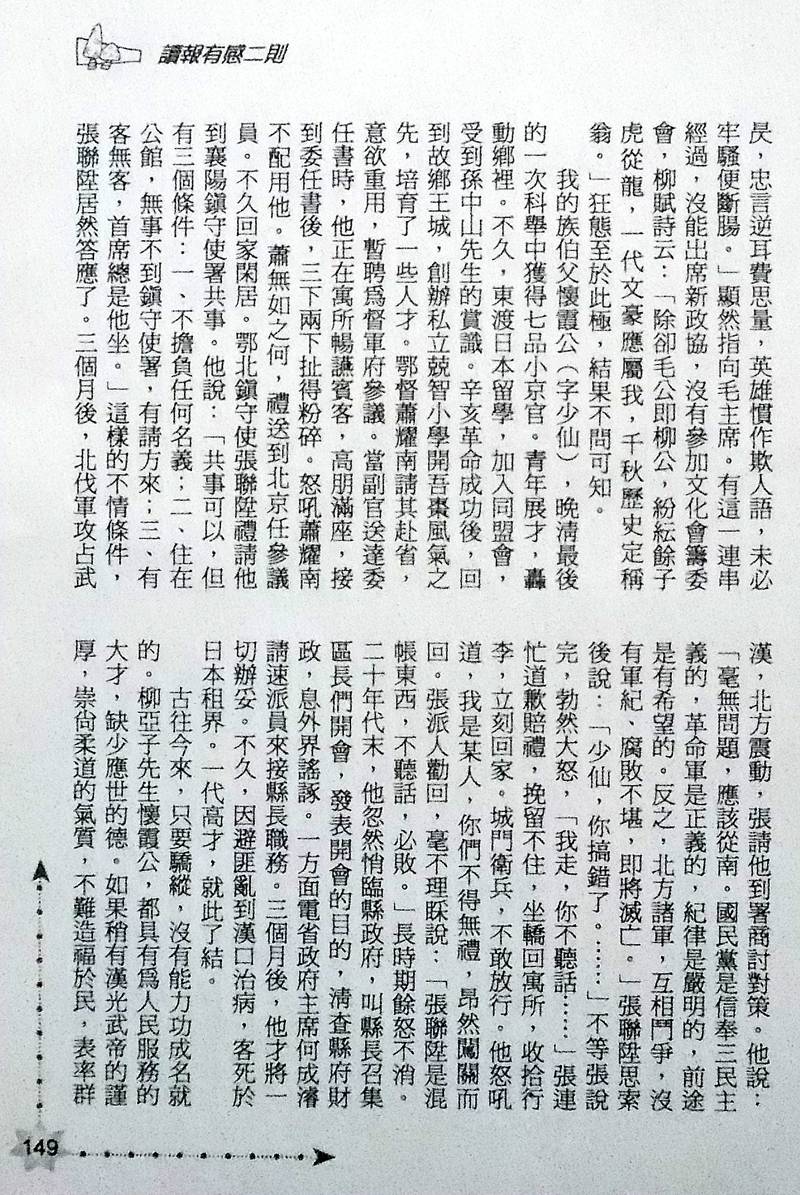 讀報有感二則
昃，忠言逆耳費思量，英雄慣作欺人語，未必
牢騷便斷腸。」顯然指向毛主席。有這一連串
經過，沒能出席新政協，沒有參加文化會籌委
會，柳賦詩云：「除卻毛公即柳公，紛紜餘子
虎從龍，一代文豪應屬我，千秋歷史定稱
翁。」狂態至於此極，結果不問可知。
我的族伯父懷霞公（字少仙），晚淸最後
的一次科舉中獲得七品小京官。青年展才，轟
動鄉裡。不久，東渡日本留學，加入同盟會，
受到孫中山先生的賞識。辛亥革命成功後，回
到故鄉王城，創辦私立兢智小學開吾棗風氣之
先，培育了一些人才。鄂督蕭耀南請其赴省，
意欲重用，暫聘爲督軍府參議。當副官送達委
任書時，他正在寓所暢讌賓客，高朋滿座，接
到委任書後，三下兩下扯得粉碎。怒吼蕭耀南
不配用他。蕭無如之何，禮送到北京任參議
員。不久回家閑居。鄂北鎭守使張聯陞禮請他
到襄陽鎭守使署共事。他說：「共事可以，但
有三個條件：一、不擔負任何名義；二、住在
公館，無事不到鎭守使署，有請方來；三、有
客無客，首席總是他坐。」這樣的不情條件，
張聯陞居然答應了。三個月後，北伐軍攻占武
漢，北方震動，張請他到署商討對策。他說：
「毫無問題，應該從南。國民黨是信奉三民主
義的，革命軍是正義的，紀律是嚴明的，前途
是有希望的。反之，北方諸軍，互相鬥爭，沒
有軍紀、腐敗不堪，即將滅亡。」張聯陞思索
後說：「少仙，你搞錯了。……」不等張說
完，勃然大怒，「我走，你不聽話……」張連
忙道歉賠禮，挽留不住，坐轎回寓所，收拾行
李，立刻回家。城門衛兵，不敢放行。他怒吼
道，我是某人，你們不得無禮，昂然闖關而
回。張派人勸回，毫不理睬說：「張聯陞是混
帳東西，不聽話，必敗。」長時期餘怒不消。
二十年代末，他忽然悄臨縣政府，叫縣長召集
區長們開會，發表開會的目的，淸查縣府財
政，息外界謠諑。一方面電省政府主席何成濬
請速派員來接縣長職務。三個月後，他才將一
切辦妥。不久，因避匪亂到漢口治病，客死於
日本租界。一代高才，就此了結。
古往今來，只要驕縱，沒有能力功成名就
的。柳亞子先生懷霞公，都具有爲人民服務的
大才，缺少應世的德。如果稍有漢光武帝的謹
厚，崇尙柔道的氣質，不難造福於民，表率群
149